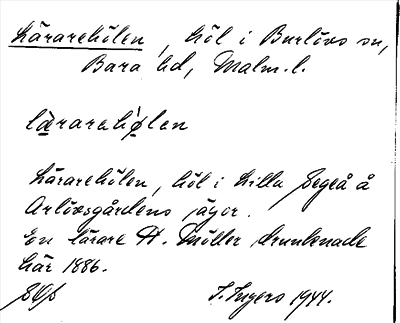 Lärarehölen, höl i Burlövs sn,
Bara hd, Malm. l.
lä̀rarehǿlen
Lärarehölen, höl i Lilla Segeå å
Arlövsgårdens ägor.
En lärare H. Möller drunknade
här 1886.
I. Ingers 1944.